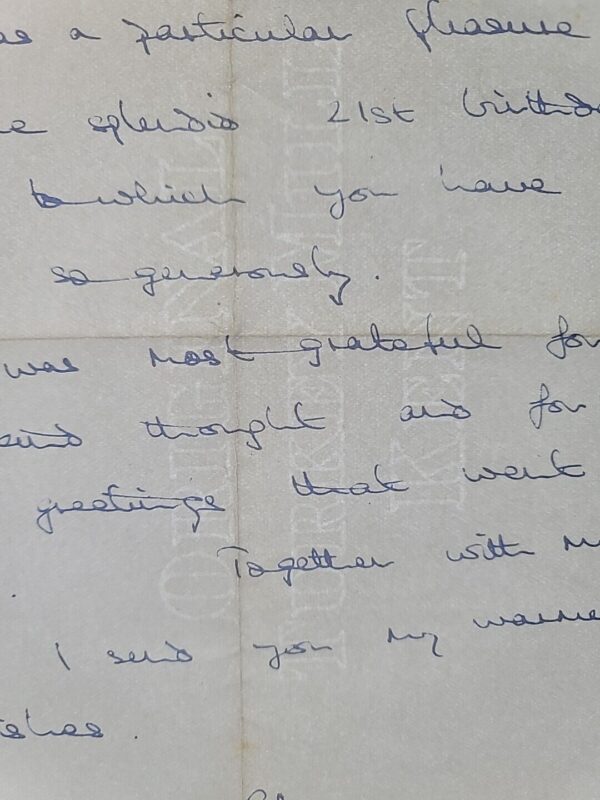 as a particular pleasure
splendid 21st birthda
to which you have
so generously.
was most grateful for
thought and for
greetings that went
Together with m
I send you my warme
ishes.
ORIGINAL
TURKEY MILL
KENT